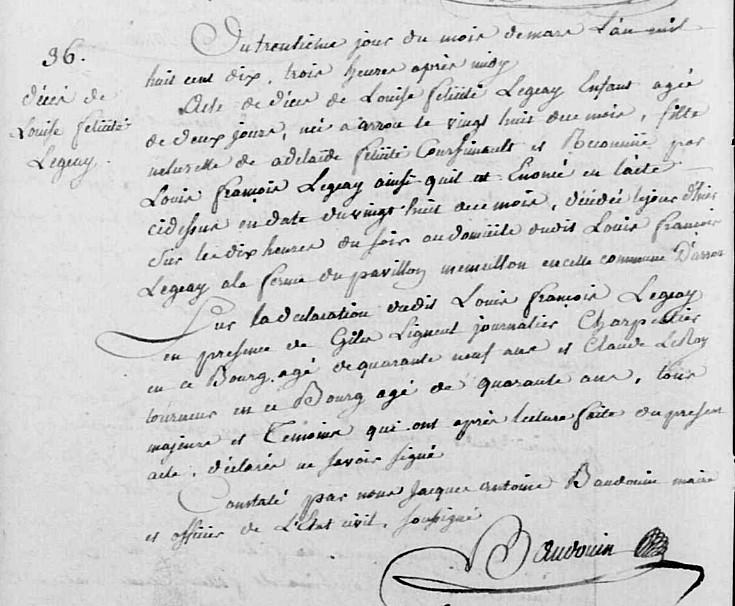 36.
décès de
Louise félicité
Legeay.
Du trentième jour du mois de mars L'an mil
huit cent dix, trois heures après midy
Acte de décès de Louise félicité Legeay Enfant agée
de deux jours, née a arrou le vingt huit du mois, fille
naturelle de adelaïde félicité Coursimault et Reconnue par
Louis françois Legeay ainsi quil est Enoncé en l'acte
cidessus en datte du vingt huit de ce mois, décédée le jour d'hier
sur les dix heures du soir au domicile dudit Louis françois
Legeay a la ferme du pavillon en cette commune D'arrou
Sur la déclaration dudit Louis françois Legeay
en presence de Giles journalier Charpentier
en ce Bourg, agé de quarante neuf ans et Claude LeRoy
tourneur en ce Bourg agé de quarante ans, tous
majeurs et Temoins qui ont après lecture faite du present
acte, déclarés ne savoir signé
Constaté par nous Jacques Antoine Baudouin maire
et officier de L'Etat civil, soussigné
Baudouin